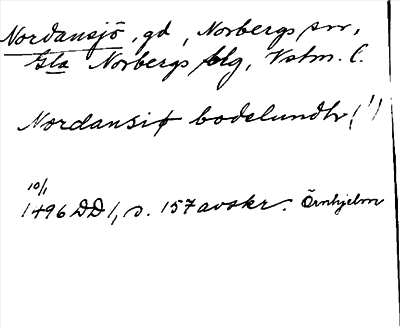 Nordansjö, gd, Norbergs sn,
Gla Norbergs blg, Vstm. l.
Nordansiø bodelundh (!)
10/1
1496 DD 1, s. 157 avskr. Örnhjelm